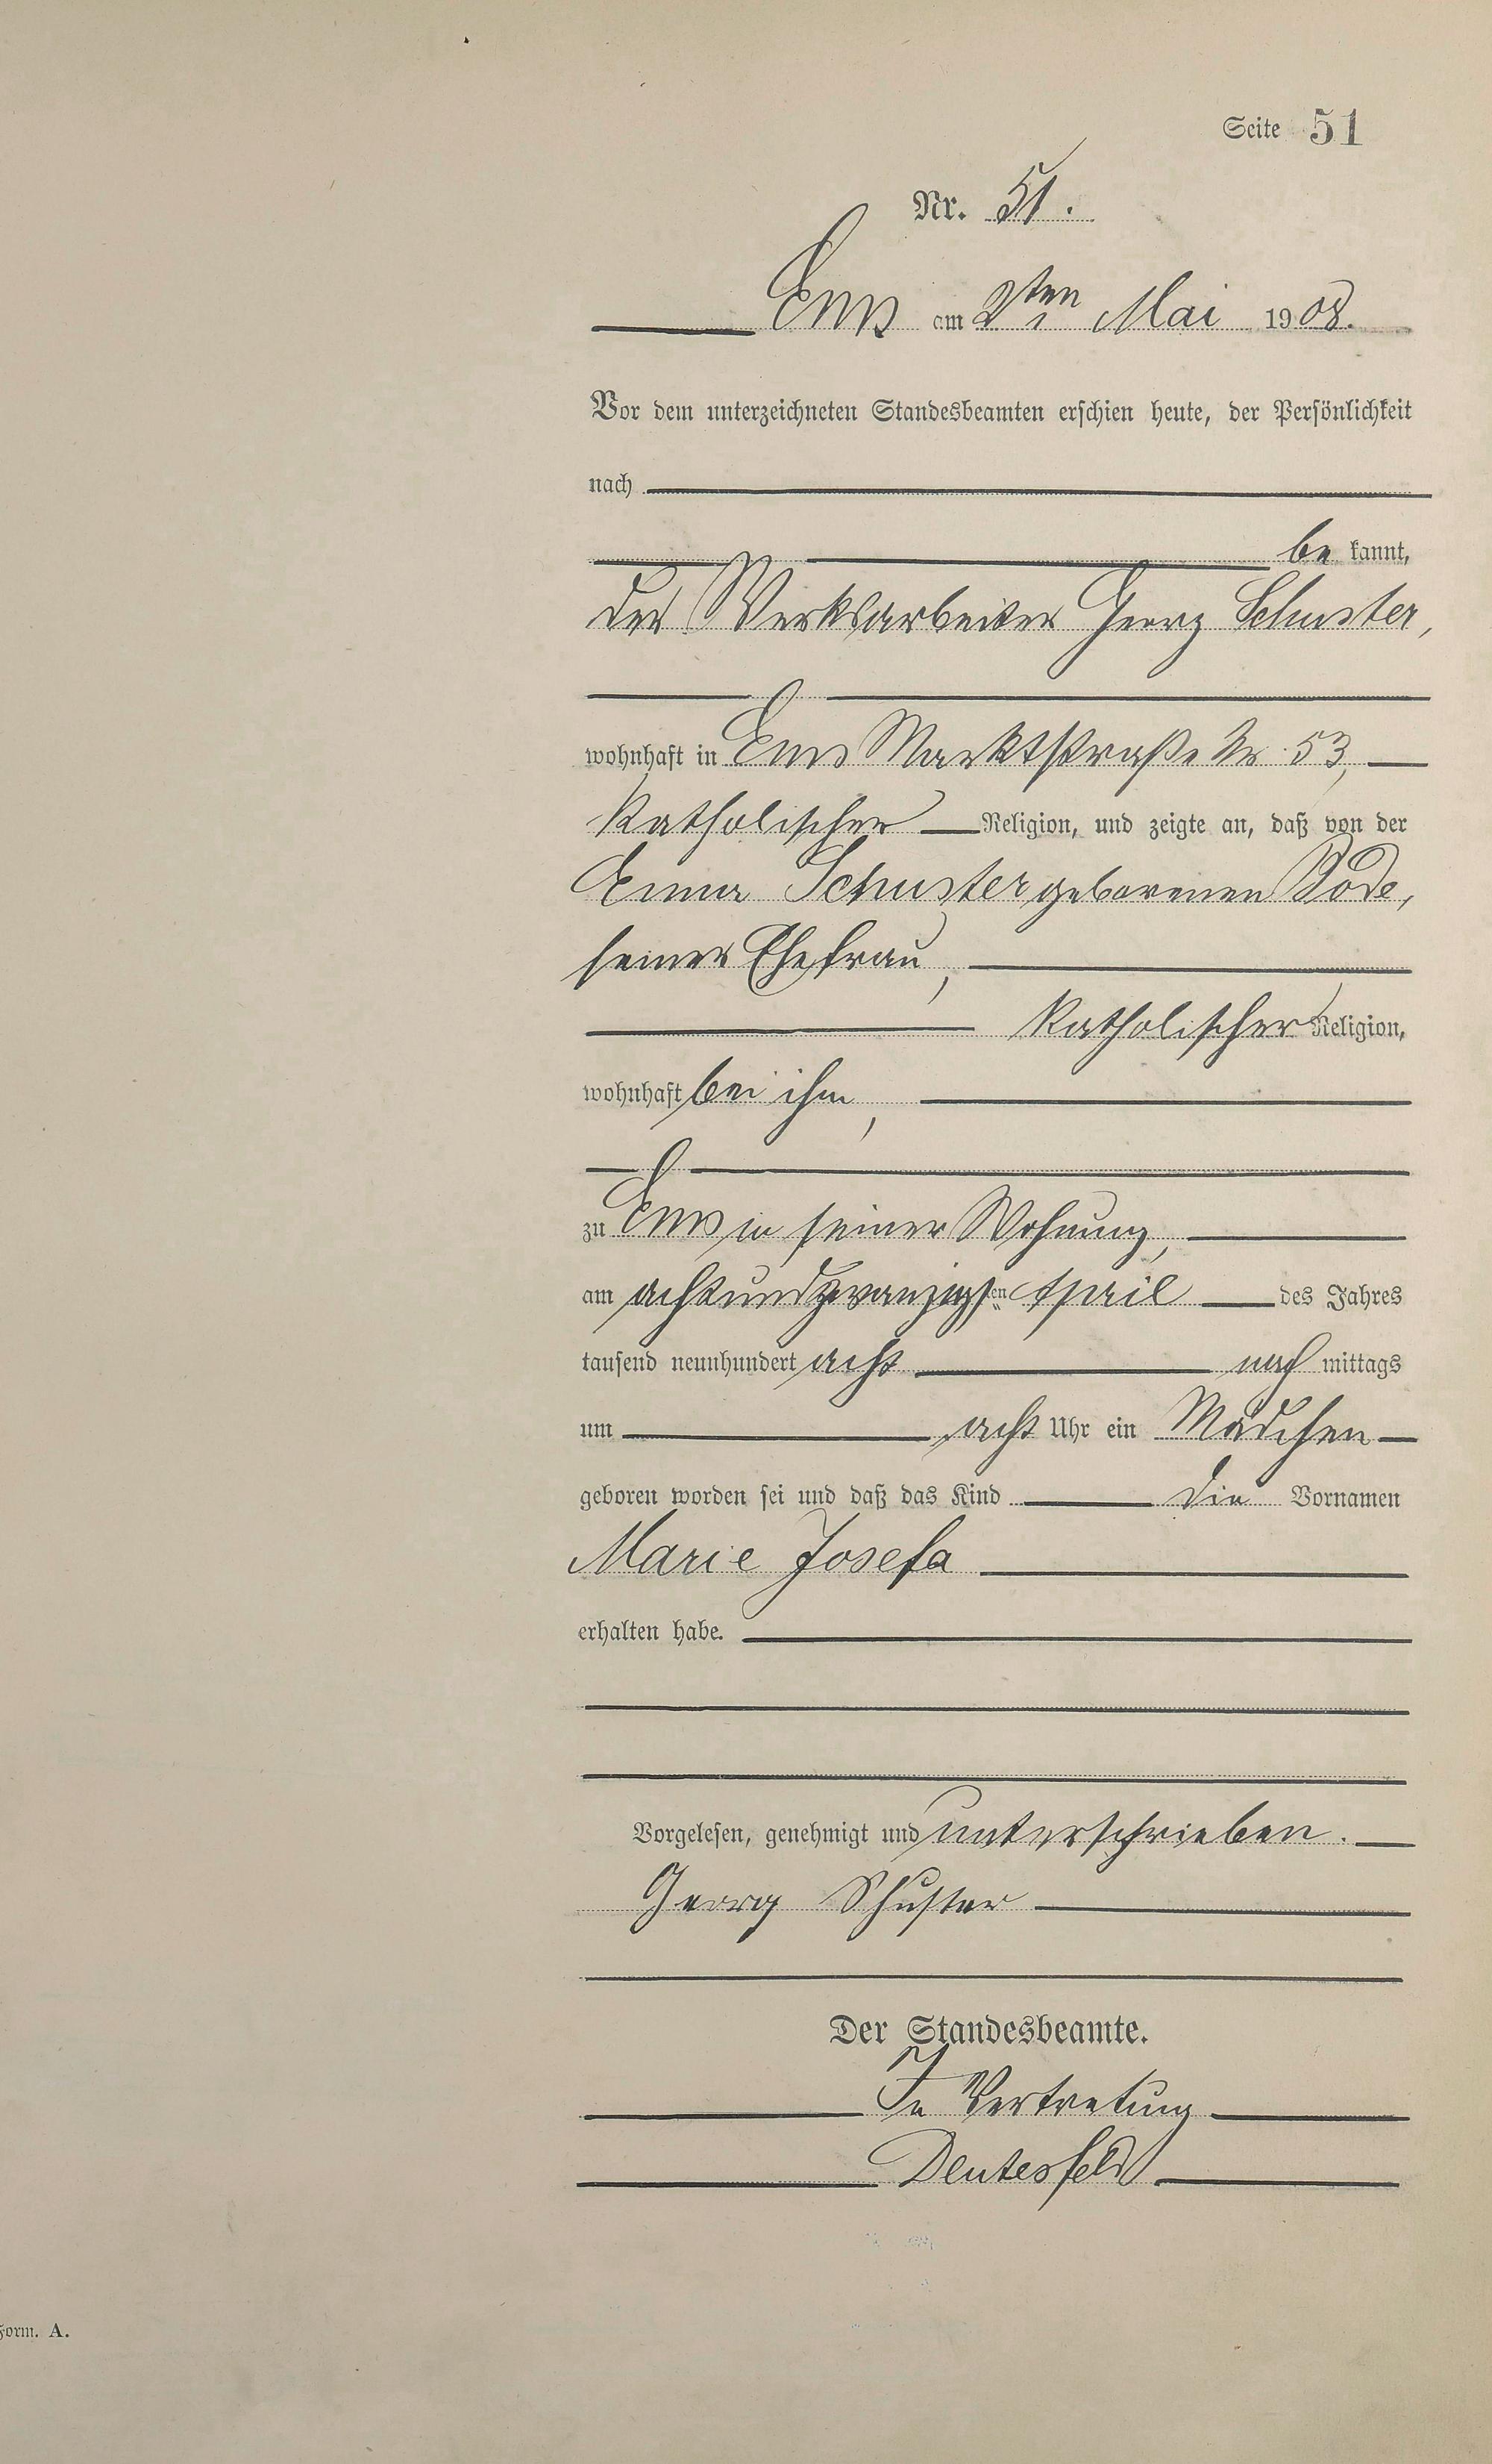 Seite 51
Nr. 51.
Ems am 2ten Mai 1908.
Vor dem unterzeichneten Standesbeamten erschien heute, der Persönlichkeit
nach
be kannt,
der Werksarbeiter Georg Schuster,
wohnhaft in Ems Marktstraße Nr. 53,
katholischer Religion, und zeigte an, daß von der
Schuster geborenen Bode,
seiner Ehefrau,
katholischer Religion,
wohnhaft bei ihm,
zu Ems in seiner Wohnung,
am achtundzwanzigsten April des Jahres
tausend neunhundert acht nach mittags
um acht Uhr ein Mädchen
geboren worden sei und daß das Kind die Vornamen
Marie Josefa
erhalten habe.
Vorgelesen, genehmigt und unterschrieben.
Georg Schuster
Der Standesbeamte.
In Vertretung
Form. A.